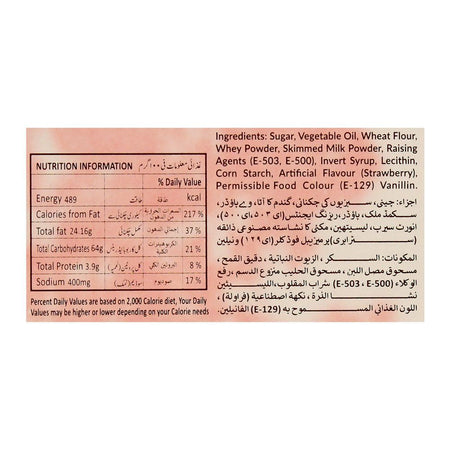 NUTRITION INFORMATION غذائی معلومات فی ۱۰۰گرام
% Daily Value
Energy 489 طاقة kcal
Calories from Fat 217 %
Total fat 24.16g 37 %
Total Carbohydrates 64g 21 %
Total Protein 3.9g 8 %
Sodium 400mg صوديوم 17 %
Percent Daily Values are based on 2,000 Calorie diet, Your Daily
Values may be higher or lower depending on your Calorie needs
Ingredients: Sugar, Vegetable Oil, Wheat Flour,
Whey Powder, Skimmed Milk Powder, Raising
Agents (E-503, E-500), Invert Syrup, Lecithin,
Corn Starch, Artificial Flavour (Strawberry),
Permissible Food Colour (E-129) Vanillin.
اجزاء: چینی، سبزیوں کی چکنائی، گندم کا آٹا، وے پاؤڈر،
سکمڈ ملک پاؤڈر، ریزنگ ایجنٹس (ای ۵۰۳، ای ۵۰۰)،
انورٹ سیرپ، لیسیتھین، مکئی کا نشاستہ مصنوعی ذائقہ
(سٹرابری) پرمیزیبل فوڈ کلر (ای ۱۲۹) ونیلین
المكونات: السكر، الزيوت النباتية ، دقيق القمح ،
مسحوق مصل اللبن ، مسحوق الحليب منزوع الدسم ، رفع
الوكلاء (E-503 ، E-500) شراب المقلوب، الليسيثين
، نشا الذرة ، نكهة اصطناعية (فراولة) ،
اللون الغذائي المسموح به (E-129) الفانيلين.